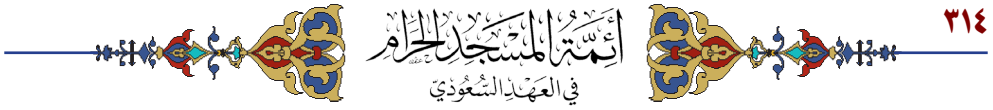 ٣١٤
أَئِمَّةُ المَسْجِدِ الحَرَامِ
فِي العَهْدِ السُّعُودِيّ